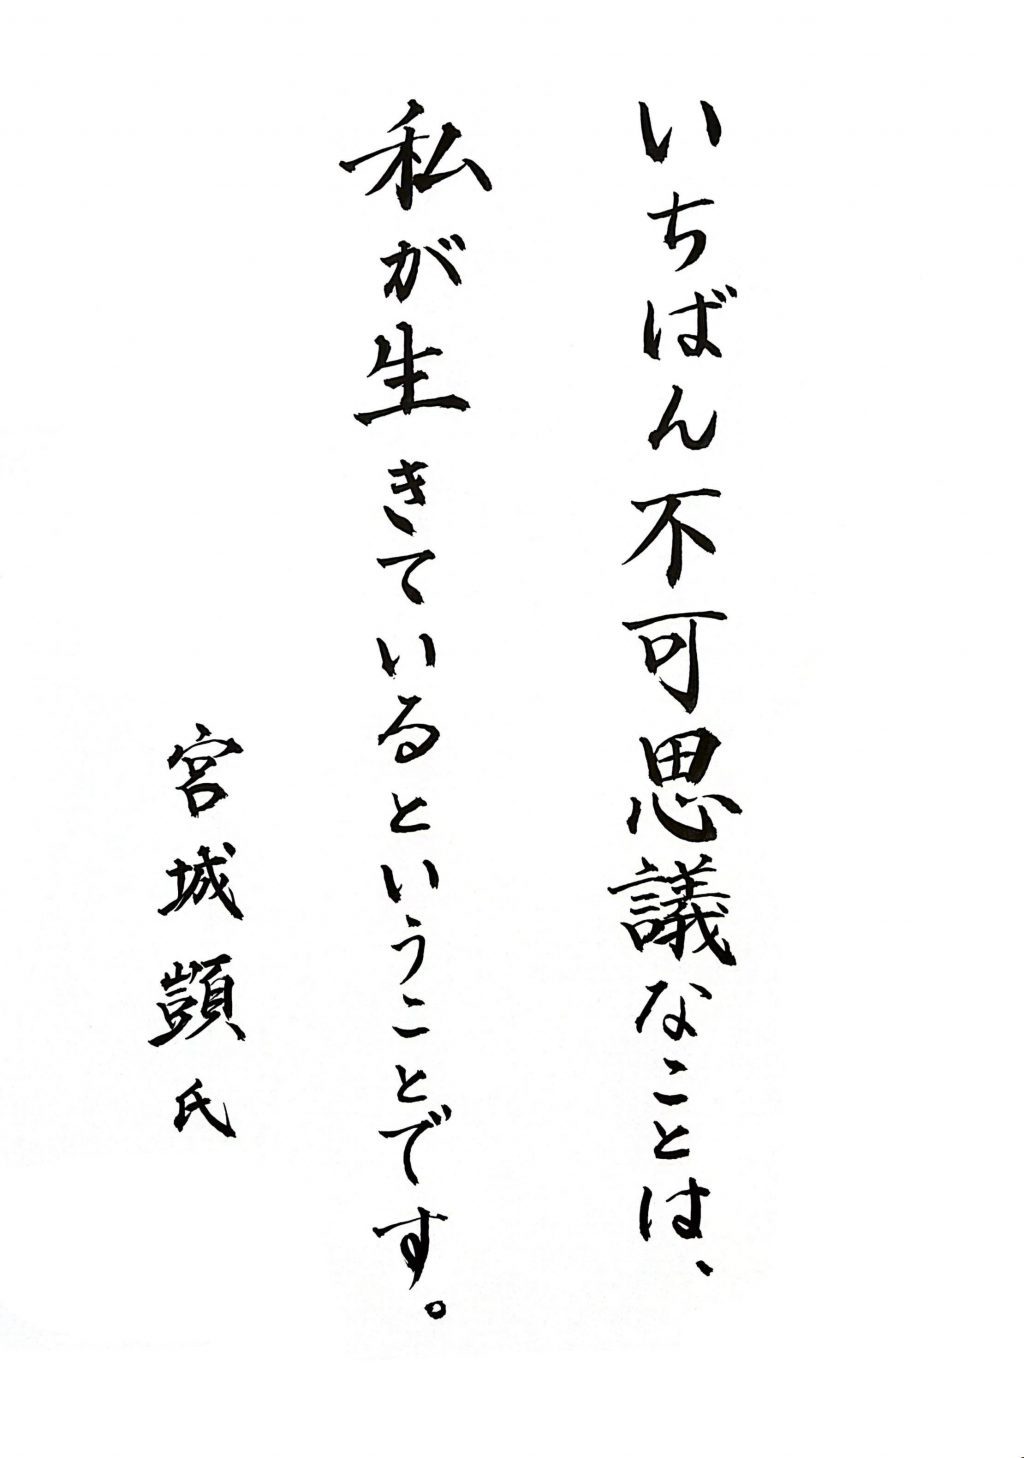 いちばん不可思議なことは、
私が生きているということです。
宮城顗氏